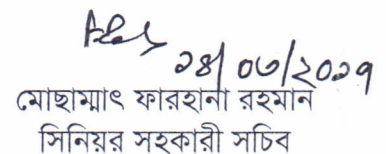 ১৪/০৩/২০১৭
মোছাম্মাৎ ফারহানা রহমান
সিনিয়র সহকারী সচিব